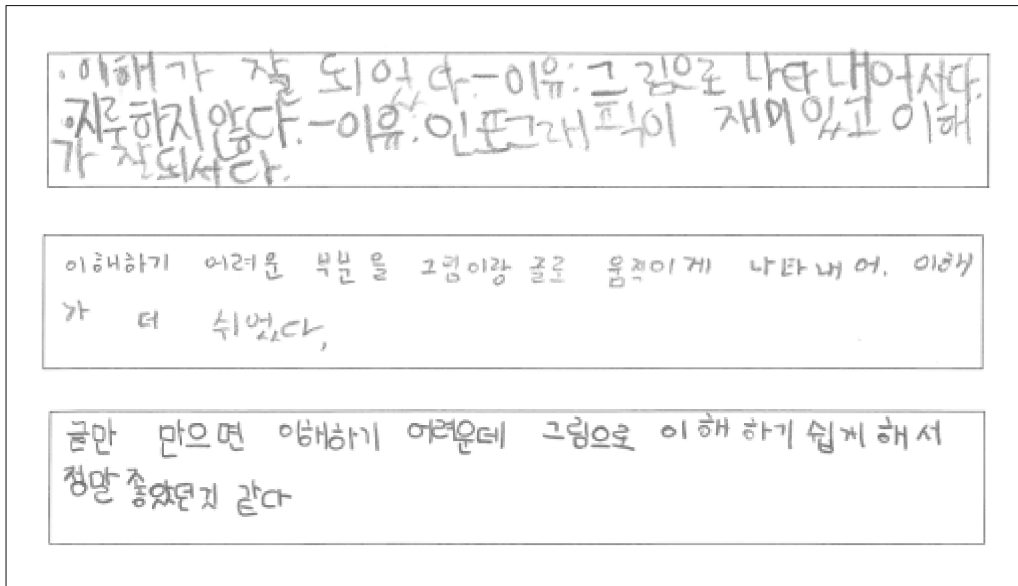 ·이해가 잘 되었다.-이유:그림으로 나타내어서다.
·지루하지않다.-이유:인포그래픽이 재미있고 이해
가 잘되서다.
이해하기 어려운 부분을 그림이랑 글로 움직이게 나타내어. 이해
가 더 쉬웠다,
글만 만으면 이해하기 어려운데 그림으로 이해하기쉽게해서
정말 좋았던것 같다